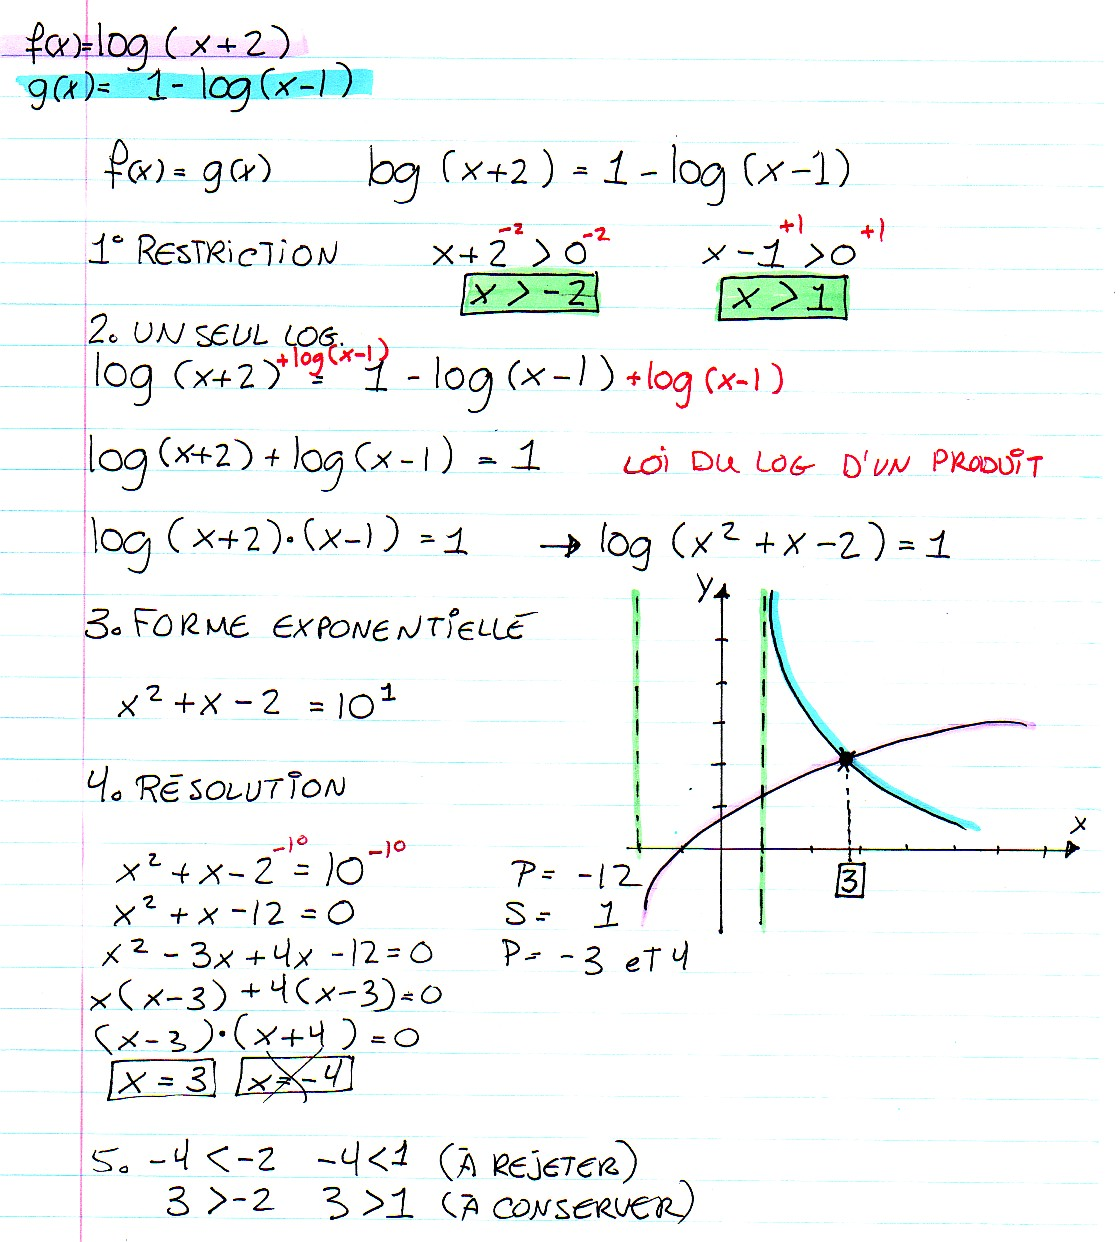 f(x)=log(x+2)
g(x)= 1-log(x-1)
f(x)=g(x) log(x+2)=1-log(x-1)
1° RESTRICTION x+2⁻²>0⁻² x-1⁺¹>0⁺¹
x>-2 x>1
2. UN SEUL LOG.
log(x+2)+log(x-1) = 1-log(x-1)+log(x-1)
log(x+2)+log(x-1)=1 LOI DU LOG D'UN PRODUIT
log(x+2)•(x-1)=1 → log(x²+x-2)=1
3. FORME EXPONENTIELLE
x²+x-2=10¹
4. RÉSOLUTION
x²+x-2⁻¹⁰=10⁻¹⁰ P= -12
x²+x-12=0 S= 1
x²-3x+4x-12=0 P= -3 et 4
x(x-3)+4(x-3)=0
(x-3)•(x+4)=0
x=3 x=-4
5. -4<-2 -4<1 (À REJETER)
3>-2 3>1 (À CONSERVER)
y
x
3